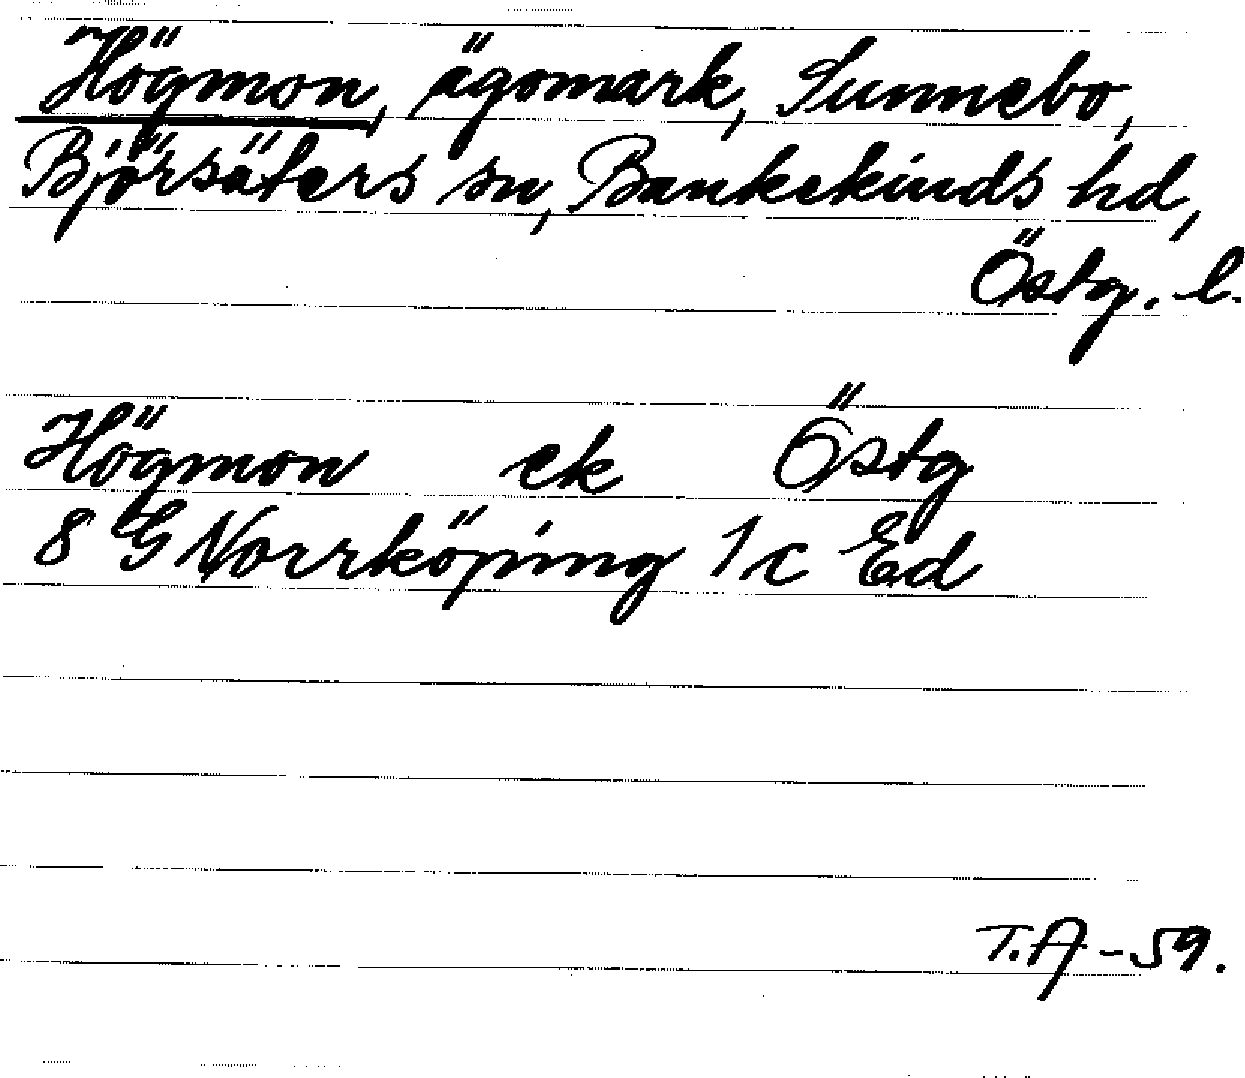 Högmon, ägomark, Sunnebo,
Björsäters sn, Bankekinds hd,
Östg. l.
Högmon ek Östg
8 G Norrköping 1 c Ed
T.A - 59.